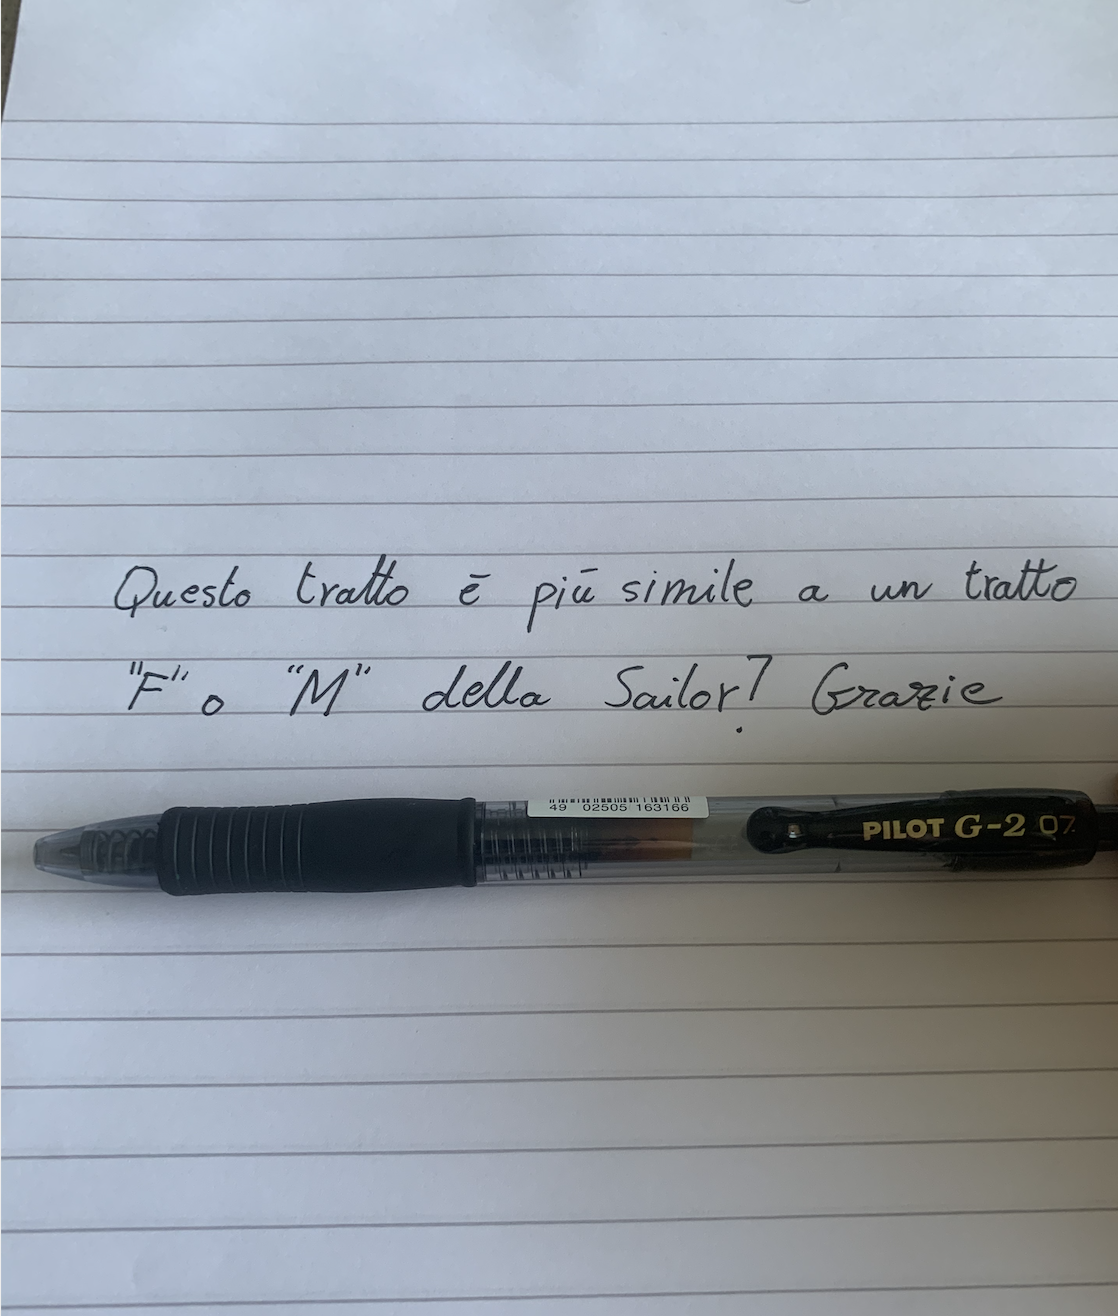 Questo tratto ē piū simile a un tratto
"F" o "M" della Sailor? Grazie
49 02505 163166
PILOT G-2 07